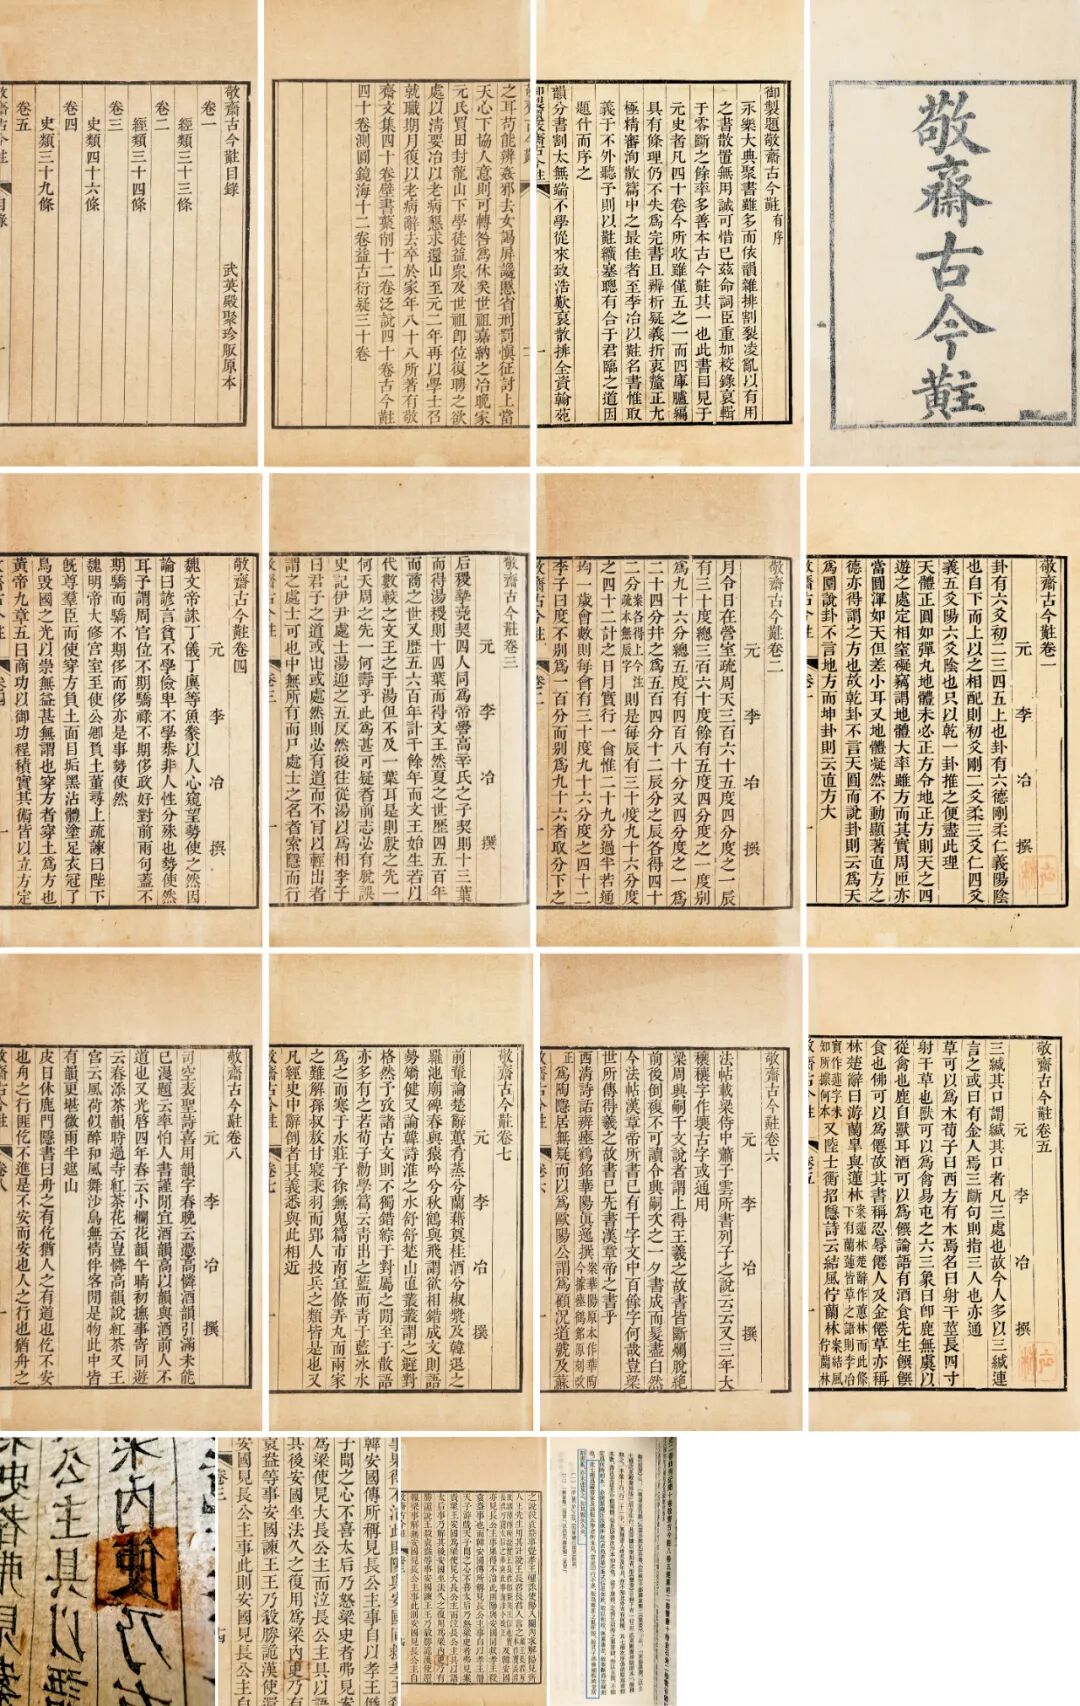 敬齋古今黈
御製題敬齋古今黈有序
永樂大典聚書雖多而依韻雜排割裂凌亂以有用
之書散置無用誠可惜已茲命詞臣重加校錄裒輯
于零斷之餘率多善本古今黈其一也此書目見于
元史者凡四十卷今所收雖僅五之一而四庫臚編
具有條理仍不失為完書且辨析疑義折衷釐正尢
極精審洵散篇中之最佳者至李冶以黈名書惟取
義于不外聽予則以黈纊塞聰有合于君臨之道因
題什而序之
韻分書割太無端不學從來致浩歎裒散排全賁翰苑
之耳苟能辨姦邪去女謁屏讒慝省刑罰慎征討上當
天心下協人意則可轉咎為休矣世祖嘉納之冶晚家
元氏買田封龍山下學徒益眾及世祖即位復聘之欲
處以清要冶以老病懇求還山至元二年再以學士召
就職期月復以老病辭去卒於家年八十八所著有敬
齋文集四十卷壁書叢削十二卷泛說四十卷古今黈
四十卷測圓鏡海十二卷益古衍疑三十卷
敬齋古今黈目錄
武英殿聚珍版原本
卷一
經類三十三條
卷二
經類三十四條
卷三
史類四十六條
卷四
史類三十九條
卷五
敬齋古今黈卷一
元 李 冶 撰
卦有六爻初二三四五上也卦有六德剛柔仁義陽陰
也自下而上以之相配則初爻剛二爻柔三爻仁四爻
義五爻陽六爻陰也只以乾一卦推之便盡此理
天體正圓如彈丸地體未必正方令地正方則天之四
遊之處定相窒礙竊謂地體大率雖方而其實周匝亦
當圓渾如天但差小耳又地體凝然不動顯著直方之
德亦得謂之方也故乾卦不言天圓而說卦則云為天
為圜說卦不言地方而坤卦則云直方大
敬齋古今黈卷二
元 李 冶 撰
月令日在營室疏周天三百六十五度四分度之一辰
有三十度總三百六十度餘有五度四分度之一度别
為九十六分總五度有四百八十分又四分度之一為
二十四分并之為五百四分十二辰分之辰各得四十
二分案各得上今注疏本無辰字則是每辰有三十度九十六分度
之四十二計之日月實行一會惟二十九分過半若通
均一歲會數則每會有三十度九十六分度之四十二
李子曰度不别為一百分而别為九十六者取分下之
敬齋古今黈卷三
元 李 冶 撰
后稷摯堯契四人同為帝嚳高辛氏之子契則十三葉
而得湯稷則十四葉而得文王然夏之世歷四五百年
而商之世又歷五六百年計千餘年而文王始生若以
代數較之文王之于湯但不及一葉耳是則殷之先一
何夭周之先一何壽乎此為甚可疑者前志必有脫誤
史記伊尹處士湯迎之五反然後往從湯以為相李子
曰君子之道或出或處然則必有道而不肎以輕出者
謂之處士可也中無所有而尸處士之名者索隱而行
敬齋古今黈卷四
元 李 冶 撰
魏文帝誅丁儀丁廙等魚豢以人心窺望勢使之然因
論曰諺言貧不學儉卑不學恭非人性分殊也勢使然
耳予謂周官位不期驕祿不期侈政好對前兩句蓋不
期驕而驕不期侈而侈亦是事勢使然
魏明帝大修宮室至使公卿負土董尋上疏諫曰陛下
既尊羣臣而使穿方負土面目垢黑沾體塗足衣冠了
鳥毀國之光以崇無益甚無謂也穿方者穿土為方也
黃帝九章五曰商功以御功程積實其術皆以立方定
敬齋古今黈卷五
元 李 冶 撰
三緘其口謂緘其口者凡三處也故今人多以三緘連
言之或曰有金人焉三斷句則指三人也亦通
草可以為木荀子曰西方有木焉名曰射干莖長四寸
射干草也獸可以為禽易屯之六三象曰即鹿無虞以
從禽也鹿自獸耳酒可以為饌論語有酒食先生饌
食也佛可以為僊故其書稱忍辱僊人及金僊草亦稱
林楚辭曰游蘭皐與蕙林
又陸士衡招隱詩云結風佇蘭林
敬齋古今黈卷六
元 李 冶 撰
法帖載梁侍中蕭子雲所書列子之說云云又三年大
穰穰字作壤古字或通用
梁周興嗣千文說者謂上得王羲之故書皆斷爛脫絕
前後倒複不可讀令興嗣次之一夕書成而髮盡白然
今法帖漢章帝所書已有千字文中百餘字何哉豈梁
世所傳得羲之故書已先書漢章帝之書乎
西清詩話辨瘞鶴銘華陽真逸撰
正為陶隱居無疑而以為歐陽公謂為顧況道號及蘇
敬齋古今黈卷七
元 李 冶 撰
前輩論楚辭蕙肴蒸兮蘭藉奠桂酒兮椒漿及韓退之
羅池廟碑春與猿吟兮秋鶴與飛謂欲相錯成文則語
勢矯健又論韓詩淮之水舒舒楚山直叢叢謂之避對
格然予攷諸古文則不獨錯綜于屬之閒至于散語
亦多有之若荀子勸學篇云青出之藍而青于藍冰水
為之而寒于水莊子徐無鬼篇市南宜僚弄丸而兩家
之難解孫叔敖甘寢秉羽而郢人投兵之類皆是也又
凡經史中辭倒者其義悉與此相近
敬齋古今黈卷八
元 李 冶 撰
司空表聖詩喜用韻字春晚云憑高憐酒韻引滿未能
已漫題云率怕人書謹閒宜酒韻高以韻與酒前人不
道也又光啓四年春云小欄花韻午晴初撫事寄同遊
云春添茶韻時過寺紅茶花云豈憐高韻說紅茶又王
官云風荷似醉和風舞沙鳥無情伴客閒是物此中皆
有韻更堪微雨半遮山
皮日休鹿門隱書曰舟之有佗猶人之有道也佗不安
也舟之行匪佗不進是不安而安也人之行也猶舟之
事果得不治此則隙與安國
韓安國傳所稱見長公主事自以孝王僭
子聞之心不喜太后乃怒梁史者弗見案
為梁使見大長公主而泣長公主具以語
其後安國坐法久之復用為梁內史乃有
袁盎等事安國諫王王乃殺勝詭漢使還
安國見長公主事此則安國見長公主自
梁內使乃有
公主具以語
梁史者弗見案